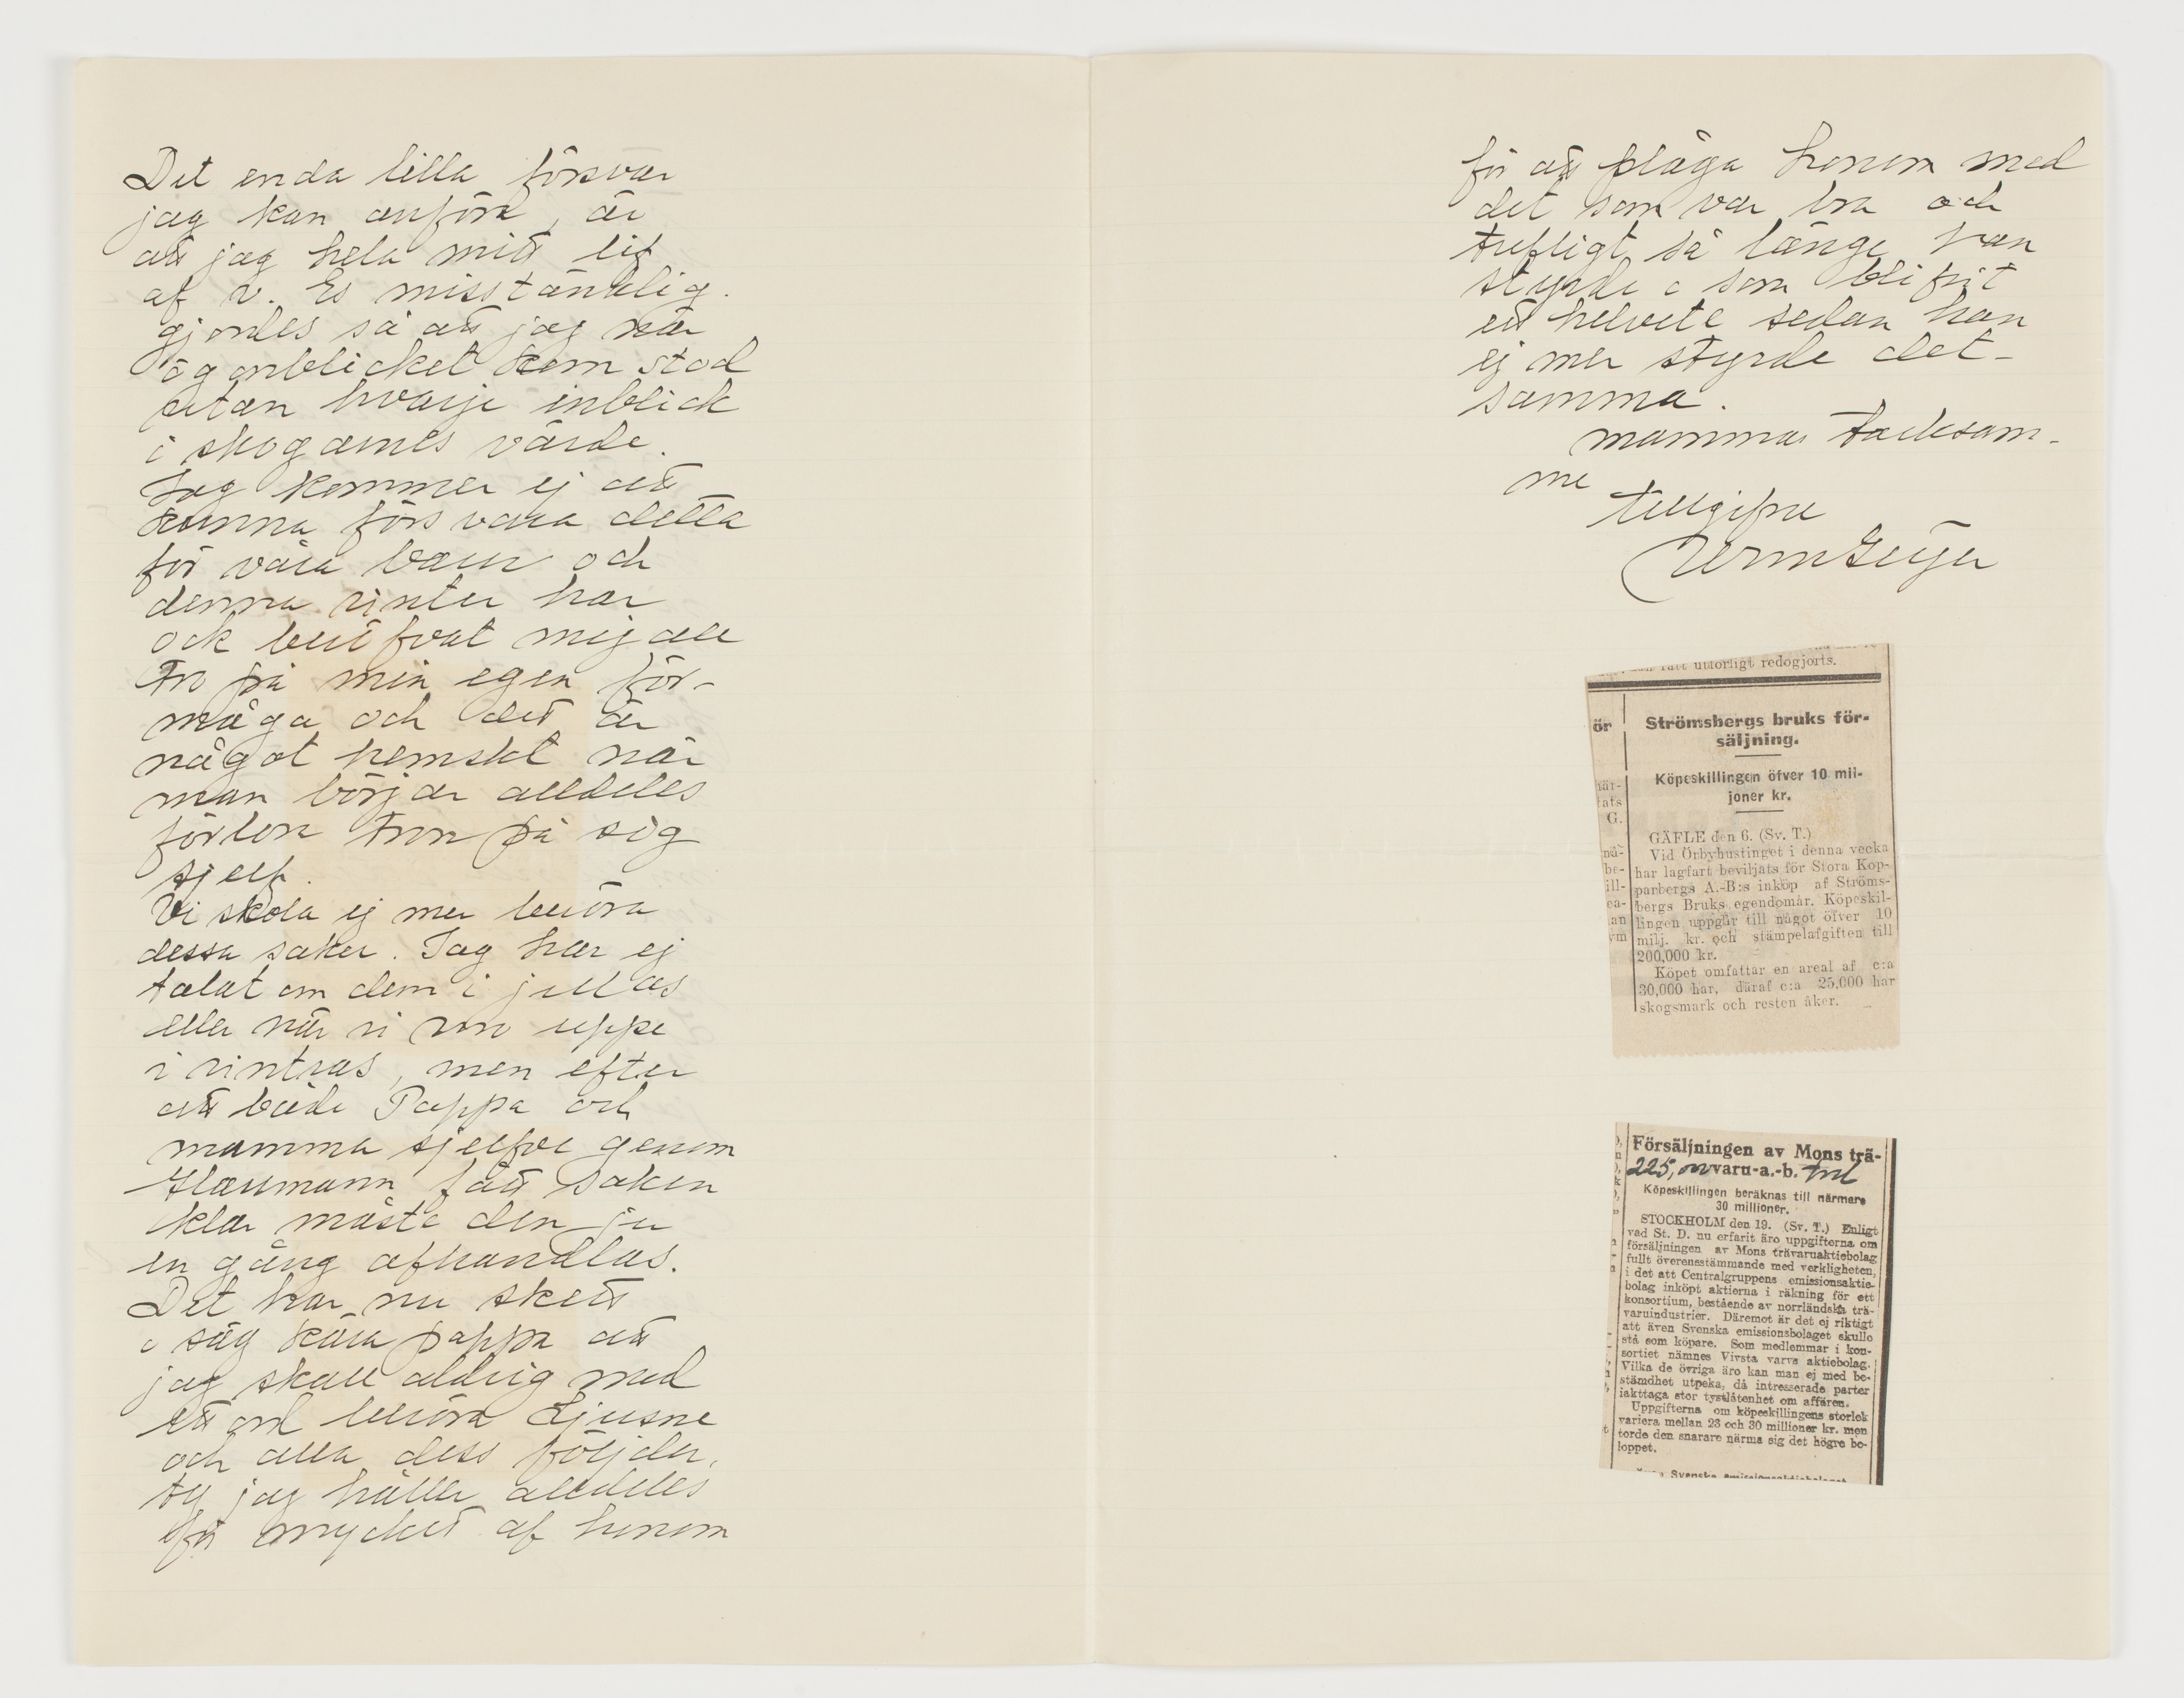 Det enda lilla försvar
jag kan anföra, är
att jag hela mitt lif
af v. Es misstänklig-
gjordes så att jag när
ögonblicket kom stod
utan hvarje inblick
i skogarnes värde.
Jag kommer ej att
kunna försvara detta
för våra barn och
denna vinter har
ock beröfvat mig all
tro på min egen för-
måga och det är
något hemskt när
man börjar alldeles
förlora tron på sig
sjelf.
Vi skola ej mer beröra
dessa saker. Jag har ej
talat om dem i julas
eller när vi voro uppe
i vintras, men efter
att både Pappa och
mamma sjelfve genom
fått saken
klar måste den ju
en gång afhandlas.
Det har nu skett
o säg kära pappa att
jag skall aldrig med
ett ord beröra Ljusne
och alla dess följder,
ty jag håller alldeles
för mycket af honom
för att plåga honom med
det som var bra och
trefligt så länge han
styrde o som blifvit
ett helvete sedan han
ej mer styrde det-
samma.
mammas tacksam-
me
tillgifne
utförligt redogjorts.
ör
Strömsbergs bruks för-
säljning.
Köpeskillingen öfver 10 mil-
joner kr.
GÄFLE den 6. (Sv. T.)
Vid Örbyhustinget i denna vecka
har lagfart beviljats för Stora Kop-
parbergs A.-B:s inköp af Ströms-
bergs Bruks egendomar. Köpeskil-
lingen uppgår till något öfver 10
milj. kr. och stämpelafgiften till
200,000 kr.
Köpet omfattar en areal af c:a
30,000 har, däraf c:a 25,000 har
skogsmark och resten åker.
Försäljningen av Mons trä-
225,000 varu-a.-b. tnl
Köpeskillingen beräknas till närmare
30 millioner.
STOCKHOLM den 19. (Sv. T.) Enligt
vad St. D. nu erfarit äro uppgifterna om
försäljningen av Mons trävaruaktiebolag
fullt överensstämmande med verkligheten,
i det att Centralgruppens emissionsaktie-
bolag inköpt aktierna i räkning för ett
konsortium, bestående av norrländska trä-
varuindustrier. Däremot är det ej riktigt
att även Svenska emissionsbolaget skulle
stå som köpare. Som medlemmar i kon-
sortiet nämnes Vivsta varvs aktiebolag.
Vilka de övriga äro kan man ej med be-
stämdhet utpeka, då intresserade parter
iakttaga stor tystlåtenhet om affären.
Uppgifterna om köpeskillingens storlek
variera mellan 23 och 30 millioner kr. men
torde den snarare närma sig det högre be-
loppet.